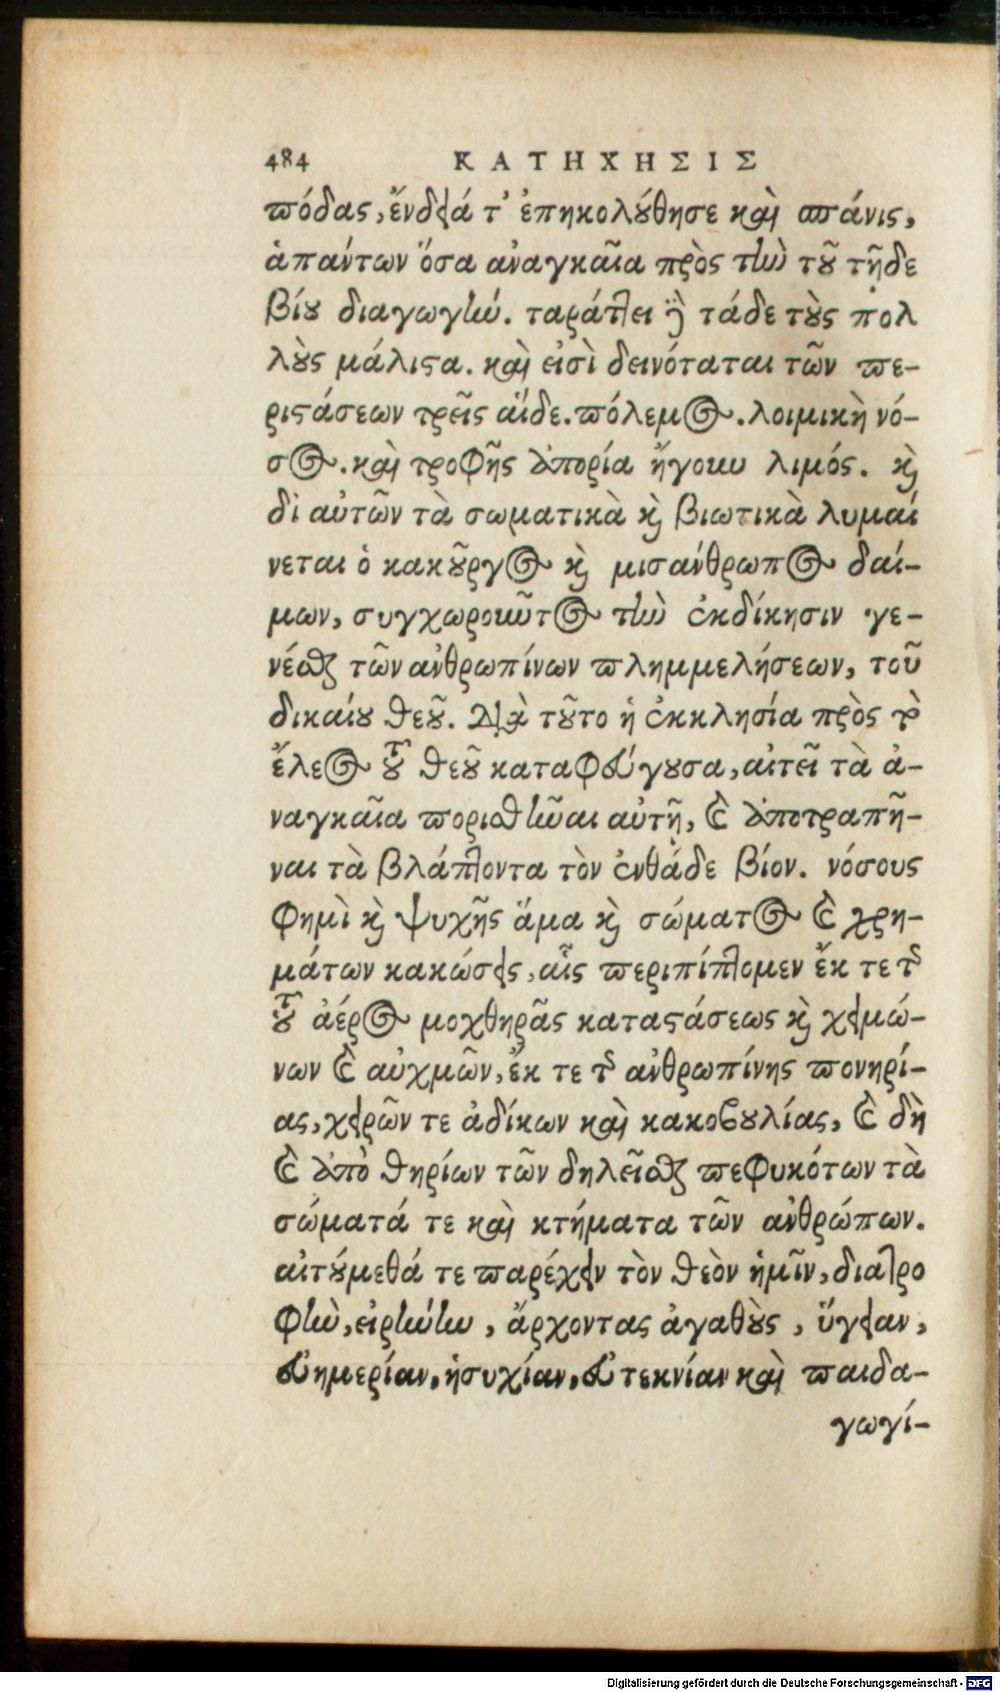 484 ΚΑΤΗΧΗΣΙΣ
πόδας, ἔνδειά τ' ἐπηκολούθησε καὶ σπάνις,
ἁπάντων ὅσα ἀναγκαῖα πρὸς τὴν τοῦ τῇδε
βίου διαγωγήν. ταράττει δὲ τάδε τοὺς πολ
λοὺς μάλιστα. καὶ εἰσὶ δεινόταται τῶν πε-
ριστάσεων τρεῖς αἵδε. πόλεμος. λοιμικὴ νό-
σος. καὶ τροφῆς ἀπορία ἤγουν λιμός. καὶ
δι αὐτῶν τὰ σωματικὰ καὶ βιωτικὰ λυμαί
νεται ὁ κακοῦργος καὶ μισάνθρωπος δαί-
μων, συγχωροῦντος τὴν ἐκδίκησιν γε-
νέσθαι τῶν ἀνθρωπίνων πλημμελήσεων, τοῦ
δικαίου θεοῦ. Διὰ τοῦτο ἡ ἐκκλησία πρὸς τὸ
ἔλεος τοῦ θεοῦ καταφεύγουσα, αἰτεῖ τὰ ἀ-
ναγκαῖα πορισθῆναι αὐτῇ, καὶ ἀποτραπῆ-
ναι τὰ βλάπτοντα τὸν ἐνθάδε βίον. νόσους
φημὶ καὶ ψυχῆς ἅμα καὶ σώματος καὶ χρη-
μάτων κακώσεις, αἷς περιπίπτομεν ἔκ τε τῆς
τοῦ ἀέρος μοχθηρᾶς καταστάσεως καὶ χειμώ-
νων καὶ αὐχμῶν, ἔκ τε τῆς ἀνθρωπίνης πονηρί-
ας, χειρῶν τε ἀδίκων καὶ κακοβουλίας, καὶ δὴ
καὶ ἀπὸ θηρίων τῶν δηλεῖσθαι πεφυκότων τὰ
σώματά τε καὶ κτήματα τῶν ἀνθρώπων.
αἰτούμεθά τε παρέχειν τὸν θεὸν ἡμῖν, διατρο
φὴν, εἰρήνην, ἄρχοντας ἀγαθοὺς, ὕγειαν,
εὐημερίαν, ἡσυχίαν, εὐτεκνίαν καὶ παιδα-
γωγί-
Digitalisierung gefördert durch die Deutsche Forschungsgemeinschaft - DFG